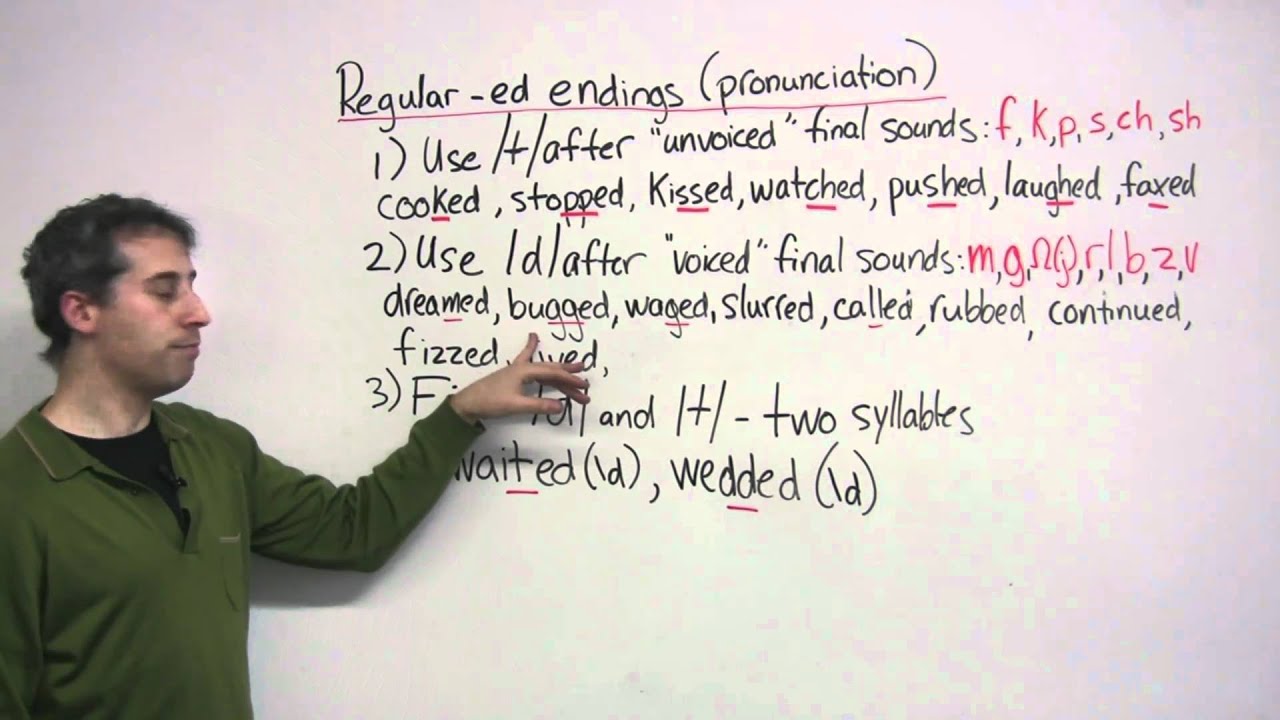 Regular -ed endings (pronunciation)
1) Use /t/ after "unvoiced" final sounds: f, k, p, s, ch, sh
cooked, stopped, kissed, watched, pushed, laughed, faxed
2) Use /d/ after "voiced" final sounds: m, g, Ω(j), r, l, b, z, v
dreamed, bugged, waged, slurred, called, rubbed, continued,
fizzed, lived,
3) /d/ and /t/ - two syllables
waited (\d), wedded (\d)